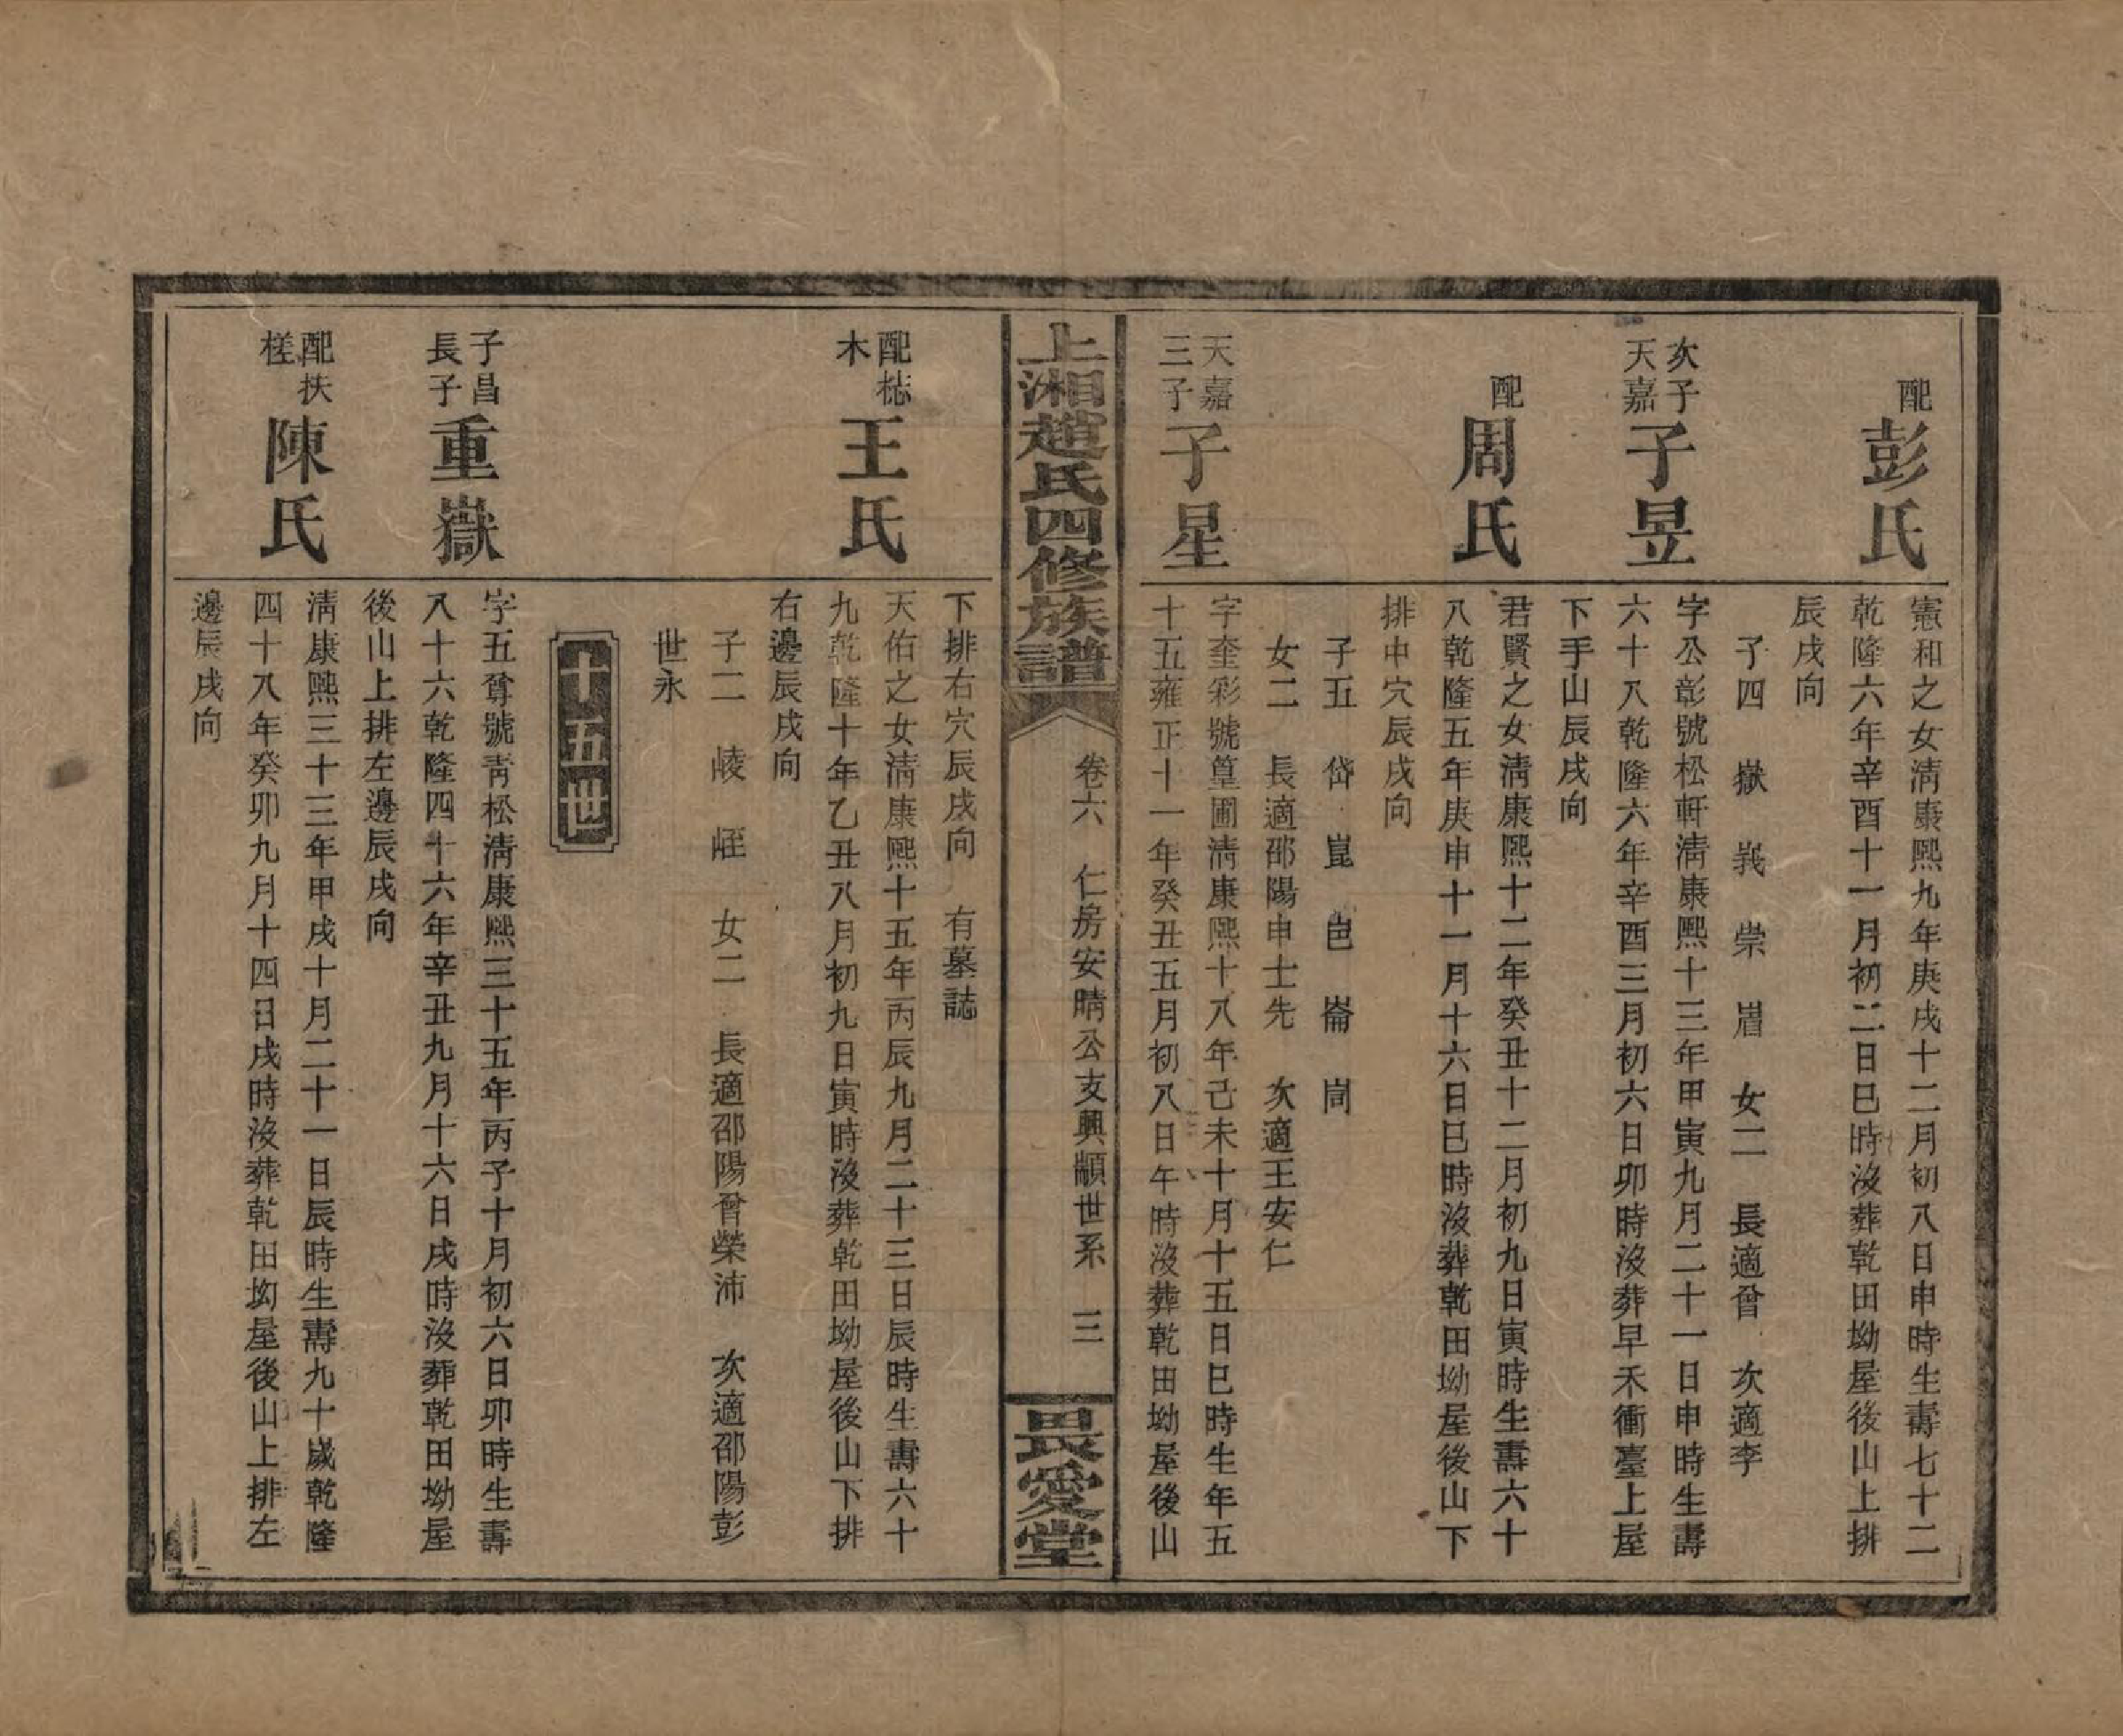 配
彭氏
憲和之女清康熙九年庚戌十二月初八日申時生壽七十二
乾隆六年辛酉十一月初二日巳時沒葬乾田坳屋後山上排
辰戌向
子四 嶽 峩 崇 嵋 女二 長適曾 次適李
次子
天嘉
子昱
字公彰號松軒清康熙十三年甲寅九月二十一日申時生壽
六十八乾隆六年辛酉三月初六日卯時沒葬早禾衝臺上屋
下手山辰戌向
配
周氏
君賢之女清康熙十二年癸丑十二月初九日寅時生壽六十
八乾隆五年庚申十一月十六日巳時沒葬乾田坳屋後山下
排中穴辰戌向
子五 岱 崑 峊 崙 峝
女二 長適邵陽申士先 次適王安仁
天嘉
三子
子星
字奎彩號篁圃清康熙十八年己未十月十五日巳時生年五
十五雍正十一年癸丑五月初八日午時沒葬乾田坳屋後山
上湘趙氏四修族譜
卷六 仁房安晴公支興顓世系 三
畏愛堂
下排右穴辰戌向 有墓誌
配梽
木
王氏
天佑之女清康熙十五年丙辰九月二十三日辰時生壽六十
九乾隆十年乙丑八月初九日寅時沒葬乾田坳屋後山下排
右邊辰戌向
子二 崚 峌 女二 長適邵陽曾榮沛 次適邵陽彭
世永
十五世
子昌
長子
重嶽
字五尊號青松清康熙三十五年丙子十月初六日卯時生壽
八十六乾隆四十六年辛丑九月十六日戌時沒葬乾田坳屋
後山上排左邊辰戌向
配扶
槎
陳氏
清康熙三十三年甲戌十月二十一日辰時生壽九十歲乾隆
四十八年癸卯九月十四日戌時沒葬乾田坳屋後山上排左
邊辰戌向